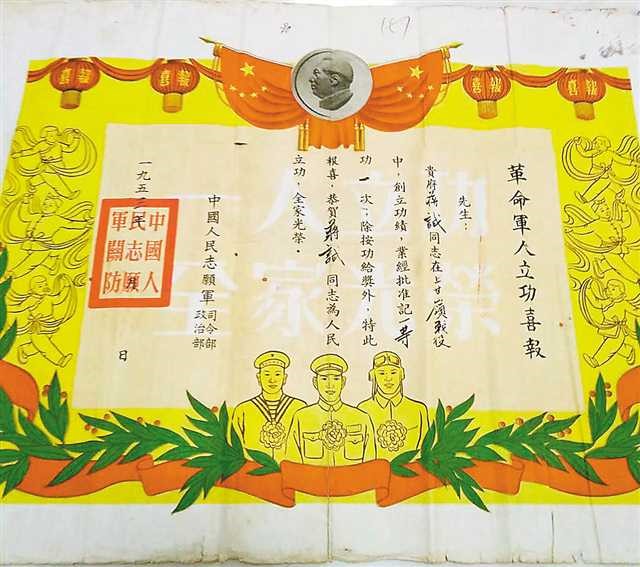 喜報
喜報
喜報
喜報
革命軍人立功喜報
先生：
貴府蔣誠同志在上甘嶺戰役
中，創立功績，業經批准記一等
功一次；除按功給獎外，特此
報喜，恭賀蔣誠同志為人民
立功，全家光榮。
中國人民志願軍司令部
政治部
一九五三
日
中國人
民志願
軍關防
一人立功
全家光榮